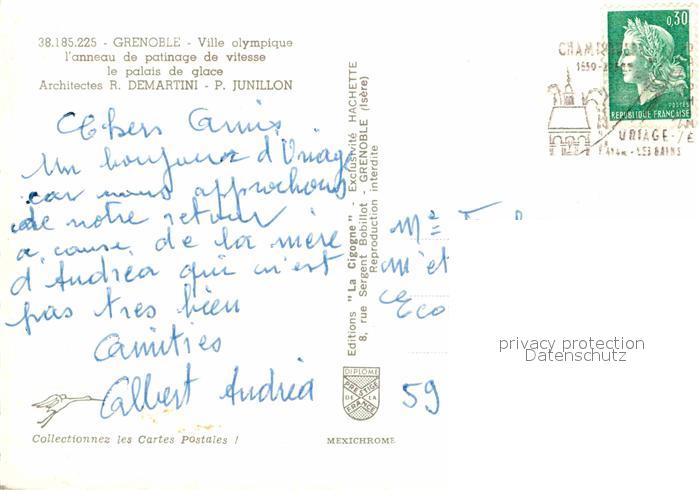 38.185.225 - GRENOBLE - Ville olympique
l'anneau de patinage de vitesse
le palais de glace
Architectes R. DEMARTINI - P. JUNILLON
Chers Amis
Un bonjour d'Uriage
car nous approchons
de notre retour
a cause de la mère
d'Andréa qui n'est
pas tres bien
Amities
Albert Andréa
Collectionnez les Cartes Postales !
Editions "La Cigogne". Exclusivité HACHETTE
8, rue Sergent Bobillot - GRENOBLE (Isère)
Reproduction interdite
DIPLOME
PRESTIGE
DE LA
FRANCE
MEXICHROME
0,30
POSTES
REPUBLIQUE FRANÇAISE
URIAGE
LES BAINS
M et
59
privacy protection
Datenschutz